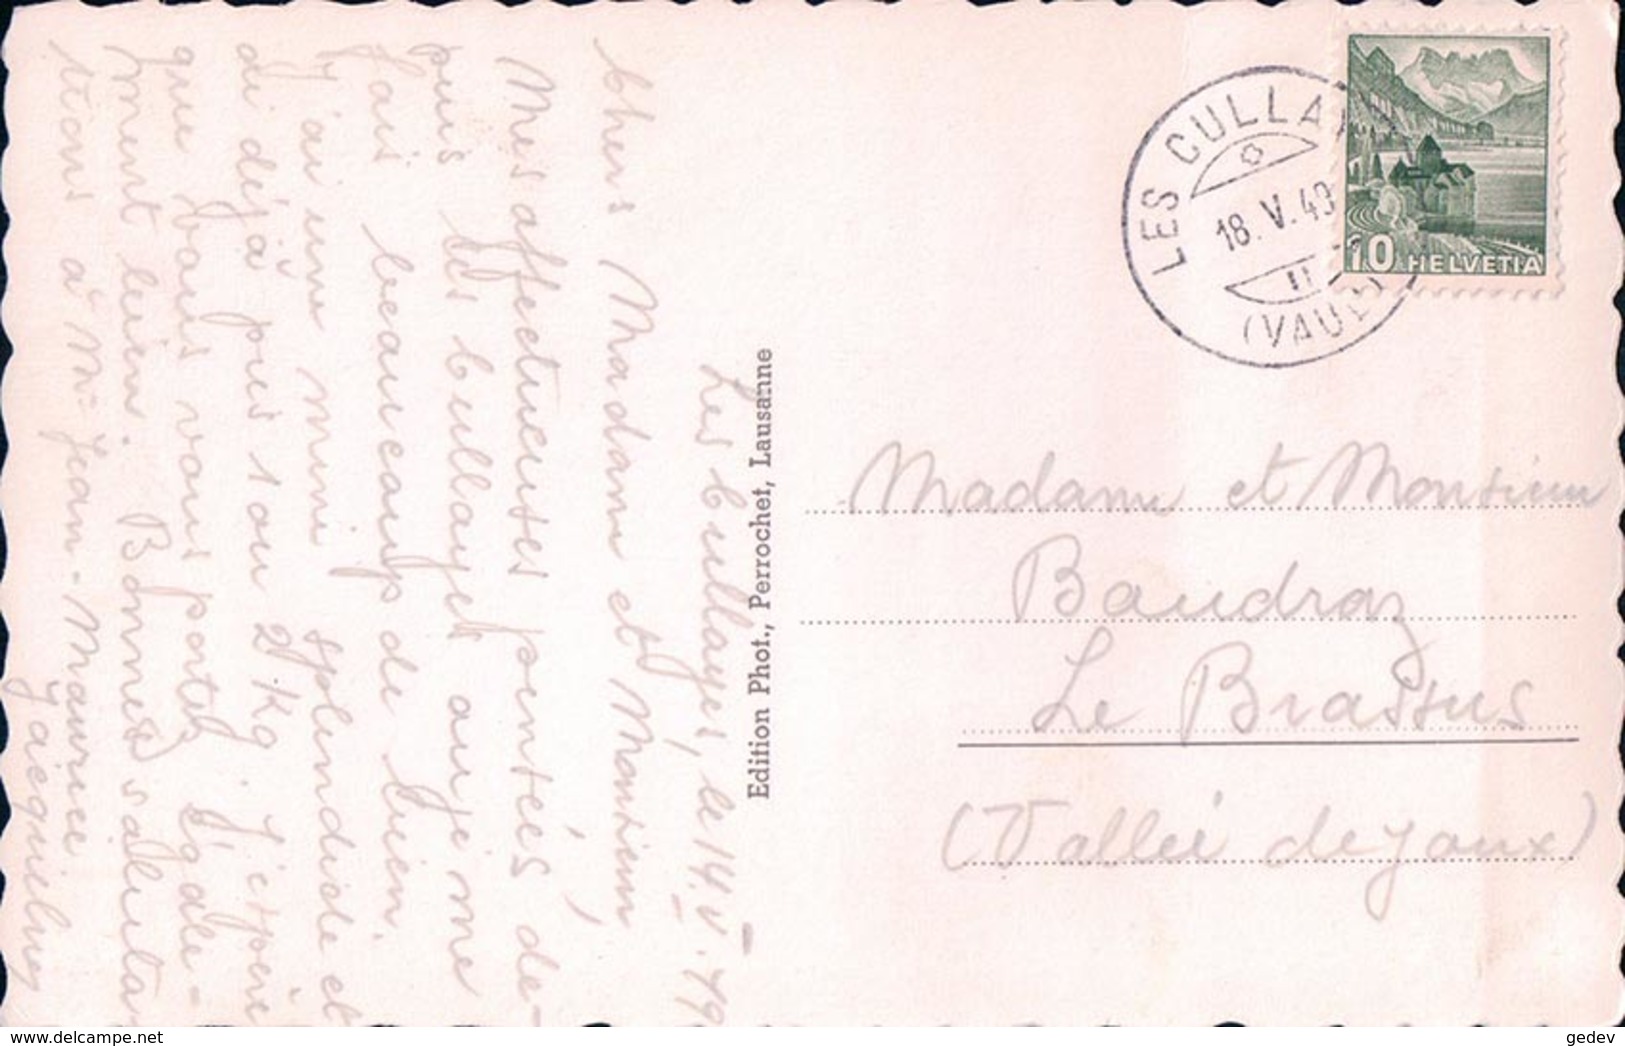 Les Cullayes, le 14.V.49
Chers Madame et Monsieur,
Mes affectueuses pensées de-
puis les Cullayes où je me
fais beaucoup de bien.
J'ai une mine splendide et
ai déjà pris 1 ou 2 kg. J'espère
que vous vous portez égale-
ment bien. Bonnes saluta-
tions à Mr Jean-Maurice
Jacqueline
Edition Phot., Perrochet, Lausanne
LES CULLAY
18.V.49
(VAUD)
10 HELVETIA
Madame et Monsieur
Baudraz
Le Brassus
(Vallée de Joux)
gedev